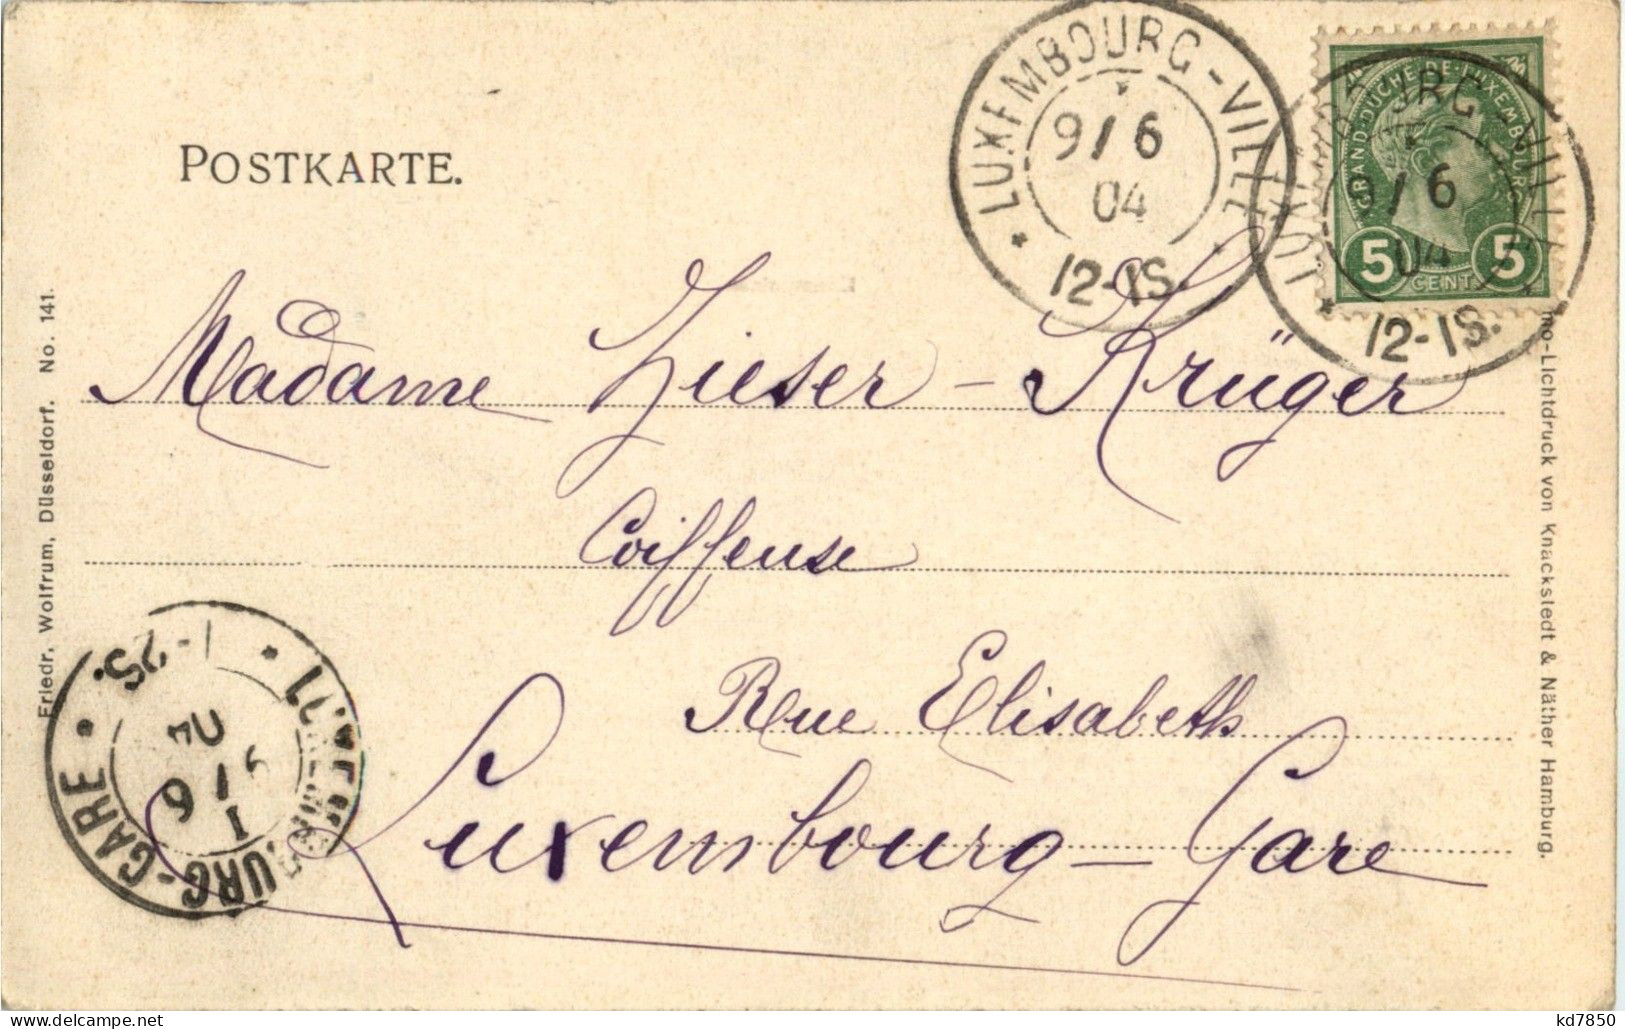 POSTKARTE.
LUXEMBOURG-VILLE
9/6
04
12-1S.
GRAND-DUCHÉ-DE-LUXEMBOURG
5 5
CENT.
9/6
04
12-1S.
Madame Zieser-Krüger
Coiffeuse
Rue Elisabeth
Luxembourg-Gare
Friedr. Wolfrum, Düsseldorf. No. 141.
mo-Lichtdruck von Knackstedt & Näther Hamburg.
URG-GARE
1-2S.
04
6
kd7850